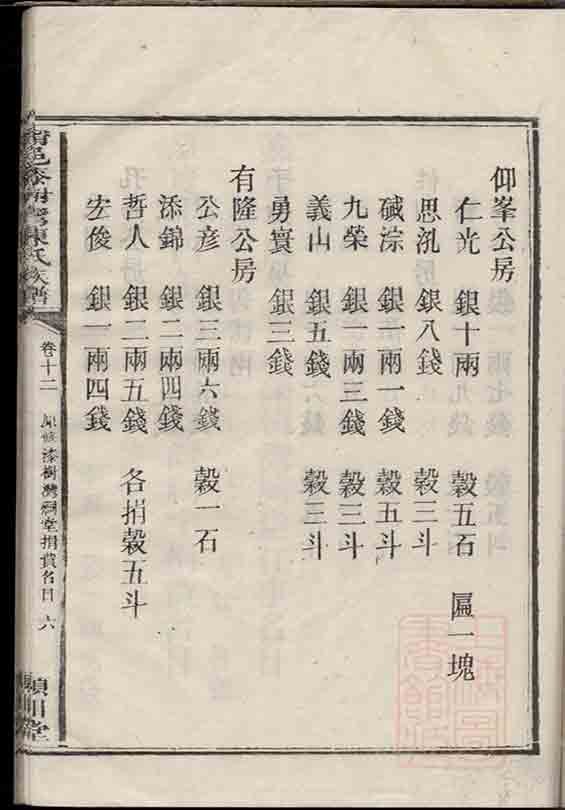 仰峯公房
仁光　銀十兩　穀五石　匾一塊
思汎　銀八錢　穀三斗
碱淙　銀一兩一錢　穀五斗
九榮　銀一兩三錢　穀三斗
義山　銀五錢　穀三斗
勇寰　銀三錢
有隆公房
公彥　銀三兩六錢　穀一石
添錦　銀二兩四錢
哲人　銀二兩五錢　各捐穀五斗
宏俊　銀一兩四錢
陳氏族譜
卷十二　漆樹灣祠堂捐貲名目　六
潁川堂